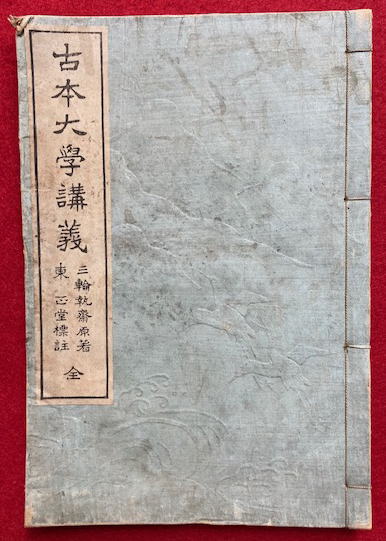 古本大學講義
三輪執齋原著
東正堂標註
全